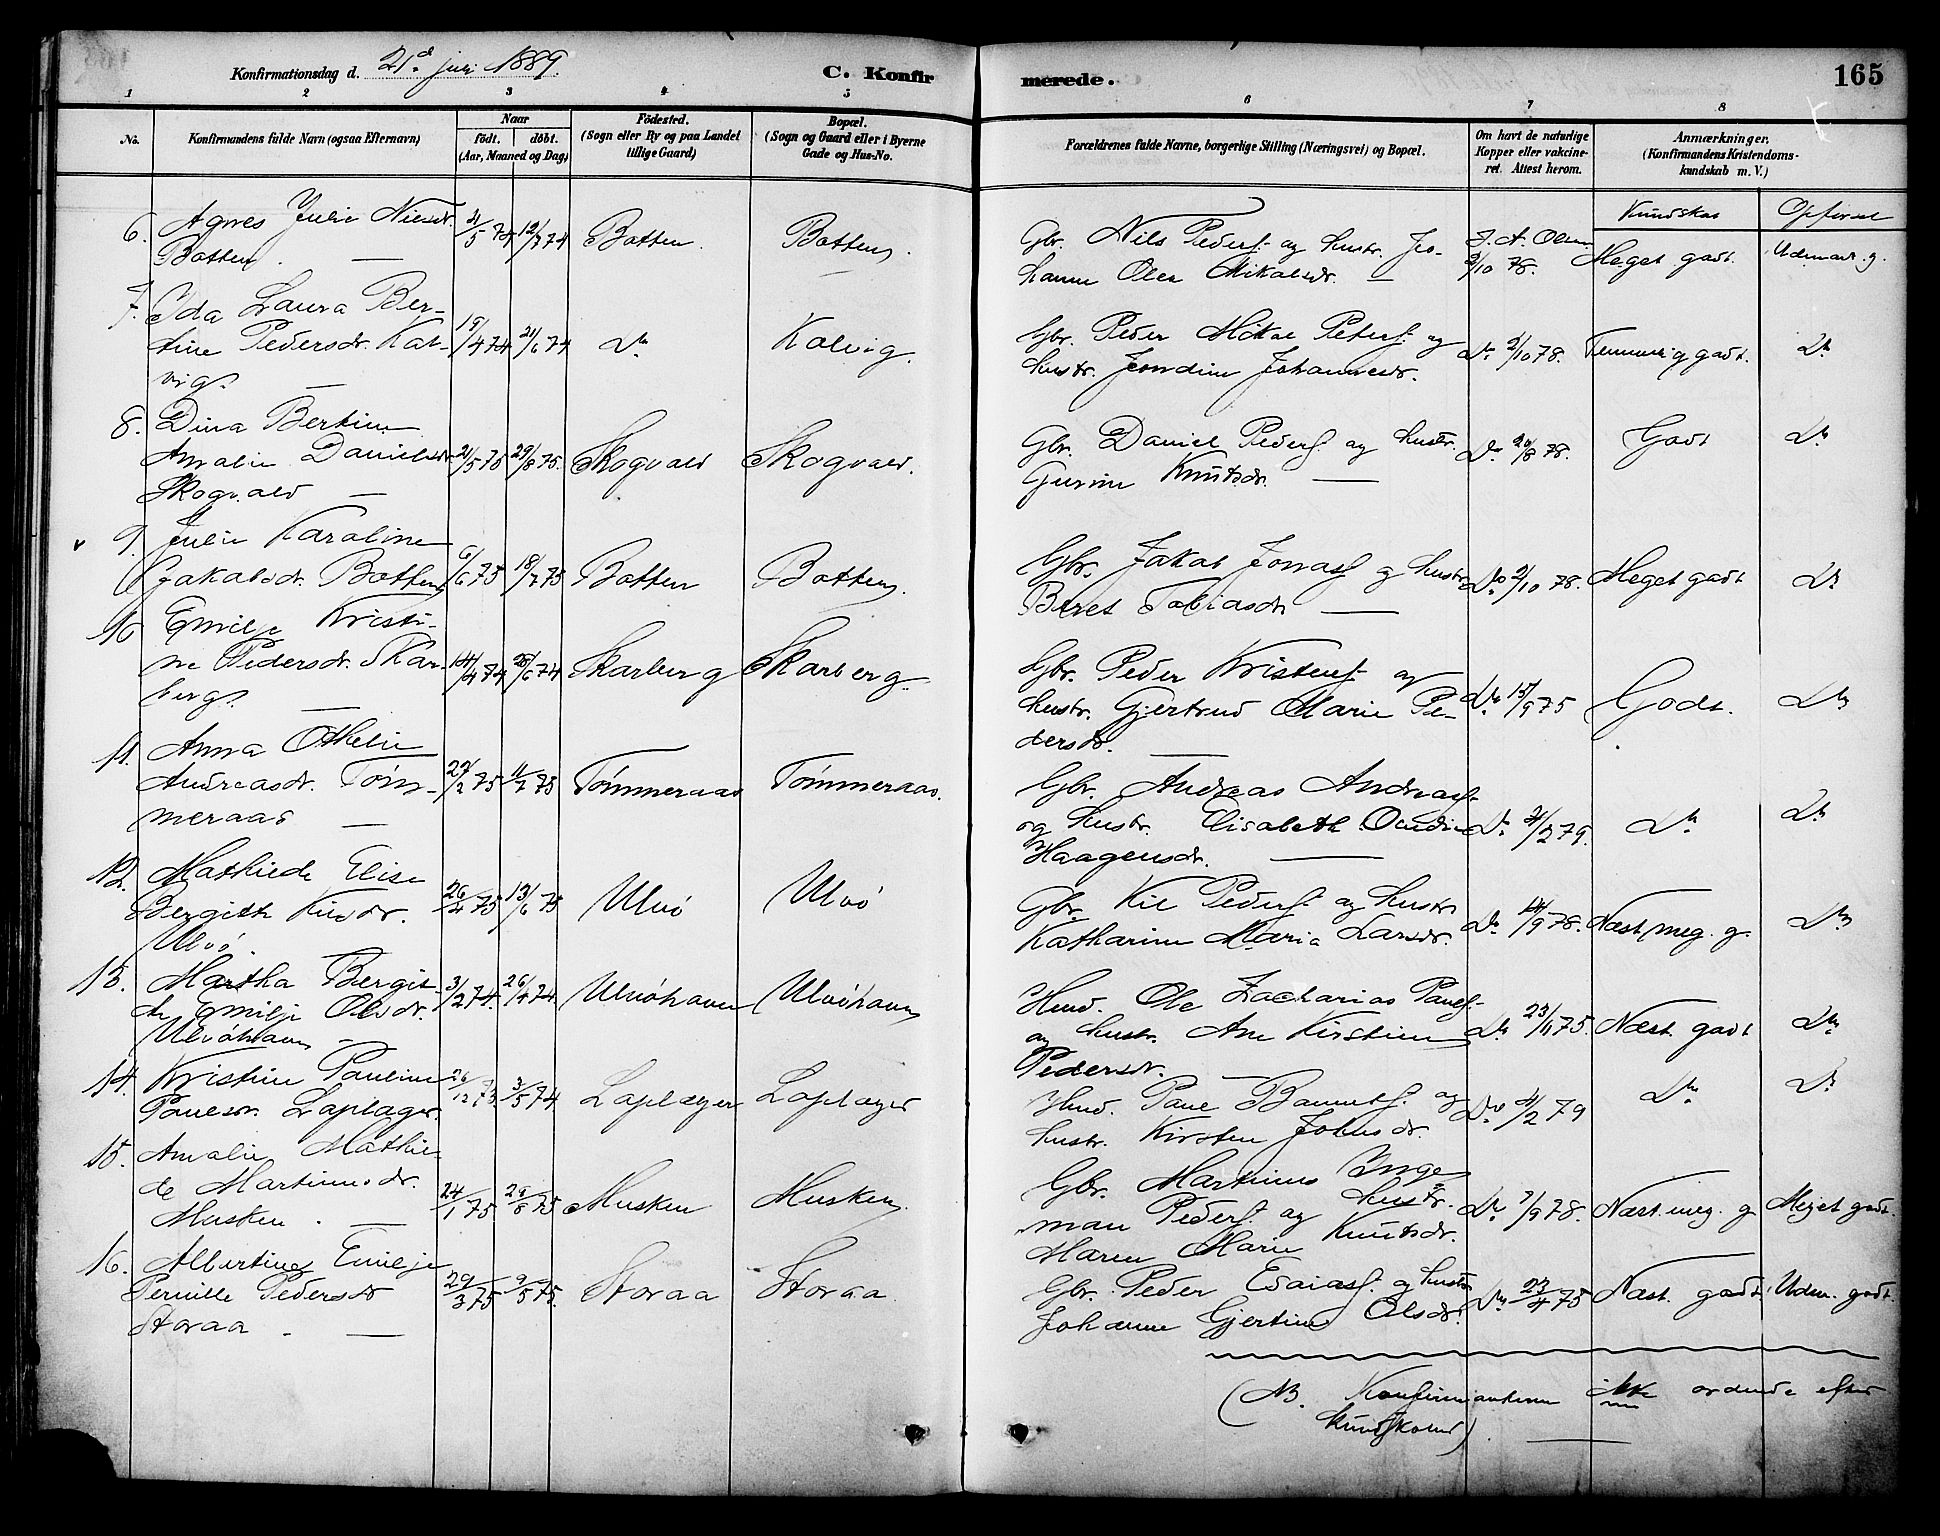 Konfirmationsdag d. 21d juli 1889.
C. Konfirmerede.
165
1 2 3 4 5 6 7 8
No.
Konfirmandens fulde Navn (ogsaa Efternavn)
Naar
født. døbt.
(Aar, Maaned og Dag)
Födested.
(Sogn eller By og paa Landet
tillige Gaard)
Bopæl.
(Sogn og Gaard eller i Byerne
Gade og Hus-No.
Forældrenes fulde Navne, borgerlige Stilling (Næringsvei) og Bopæl.
Om havt de naturlige
Kopper eller vakcine-
ret. Attest herom.
Anmærkninger.
(Konfirmandens Kristendoms-
kundskab m. V.)
Kundskab Opførsel
6. Agnes Julie Nilsdr.
Botten. —
21/5 74 12/7 74 Botten. Botten.
Gbr. Nils Peders. og hustr. Jo-
hanne Olea Mikalsdr. —
J. A. Olsen
2/10 78. Meget godt. Udmærk. g.
7. Ida Laura Ber-
tine Pedersdr. Kal-
vig. —
19/4 74 21/6 74 Do Kalvig.
Gbr. Peder Mikal Peders. og
hustr. Jerndine Johannesdr.
Do 2/10 78. Temmelig godt. Do
8. Dina Bertine
Amalie Danielsdr.
Skogvold —
21/5 75 29/8 75. Skogvold Skogvold.
Gbr. Daniel Peders. og hustr.
Gurine Knutsdr. —
Do 20/8 78. Godt Do
9. Julie Karoline
Jakobsdr. Botten
6/6 75 18/7 75 Botten Botten.
Gbr. Jakob Jonas. og hustr.
Beret Tobiasdr. —
Do 2/10 78. Meget godt Do
10 Emilje Kristi-
ne Pedersdr. Skar-
berg. —
14/4 74 28/6 74 Skarberg Skarberg.
Gbr. Peder Kristens. og
hustr. Gjertrud Marie Pe-
dersdr. —
Do 15/9 75 Godt. Do
11. Anna Othelie
Andreasdr. Tøm-
meraas —
27/2 75 11/7 75 Tømmeraas Tømmeraas.
Gbr. Andreas Andreas.
og hustr. Elisabeth Oudine
Haagensdr. —
Do 21/2 79. Do Do
12. Mathilde Elise
Bergitte Kilsdr.
Ulvø.
26/4 75 13/6 75 Ulvø Ulvø
Gbr. Kil Peders. og hustr
Katharine Maria Larsdr.
Do 14/9 78. Næst. meg. g. Do
13. Martha Bergit-
te Emilje Olsdr.
Ulvøhavn —
3/2 74. 26/4 74. Ulvøhavn Ulvøhavn
Hmd. Ole Zacharias Pauls.
og hustr. Ane Kirstine
Pedersdr. —
Do 23/11 75. Næst. godt Do
14. Kristine Pauline
Paulsdr. Laplæger.
26/12 73. 3/5 74 Laplæger Laplæger
Hmd. Paul Bannets. og
hustr. Kirsten Johnsdr.
Do 21/2 79 Do Do
15. Amalie Mathil-
de Martinusdr.
Musken. —
24/1 75 29/8 75 Musken Musken.
Gbr. Martinus Inge-
man Peders. og hustr.
Maren Marie Knutsdr.
Do 7/9 78. Næst. meg. g Meget godt.
16. Albertine Emilje
Pernille Pedersdr
Storaa. —
29/3 75 9/5 75. Storaa Storaa.
Gbr. Peder Esaias. og hustr
Johanne Gjertine Olsdr.
Do 27/4 75 Næst. godt. Udm. godt.
(NB. Konfirmanterne ikke ordnede efter
kundskaber). —